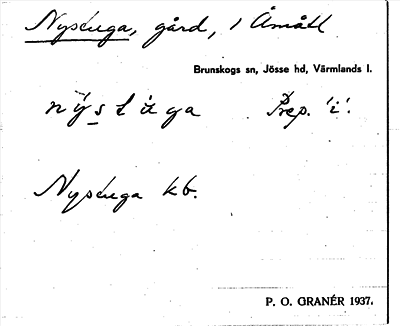 Nystuga, gård, 1 Åmått
Brunskogs sn, Jösse hd, Värmlands l.
nystuga Prep. 'i'.
Nystuga kb.
P. O. GRANÉR 1937.